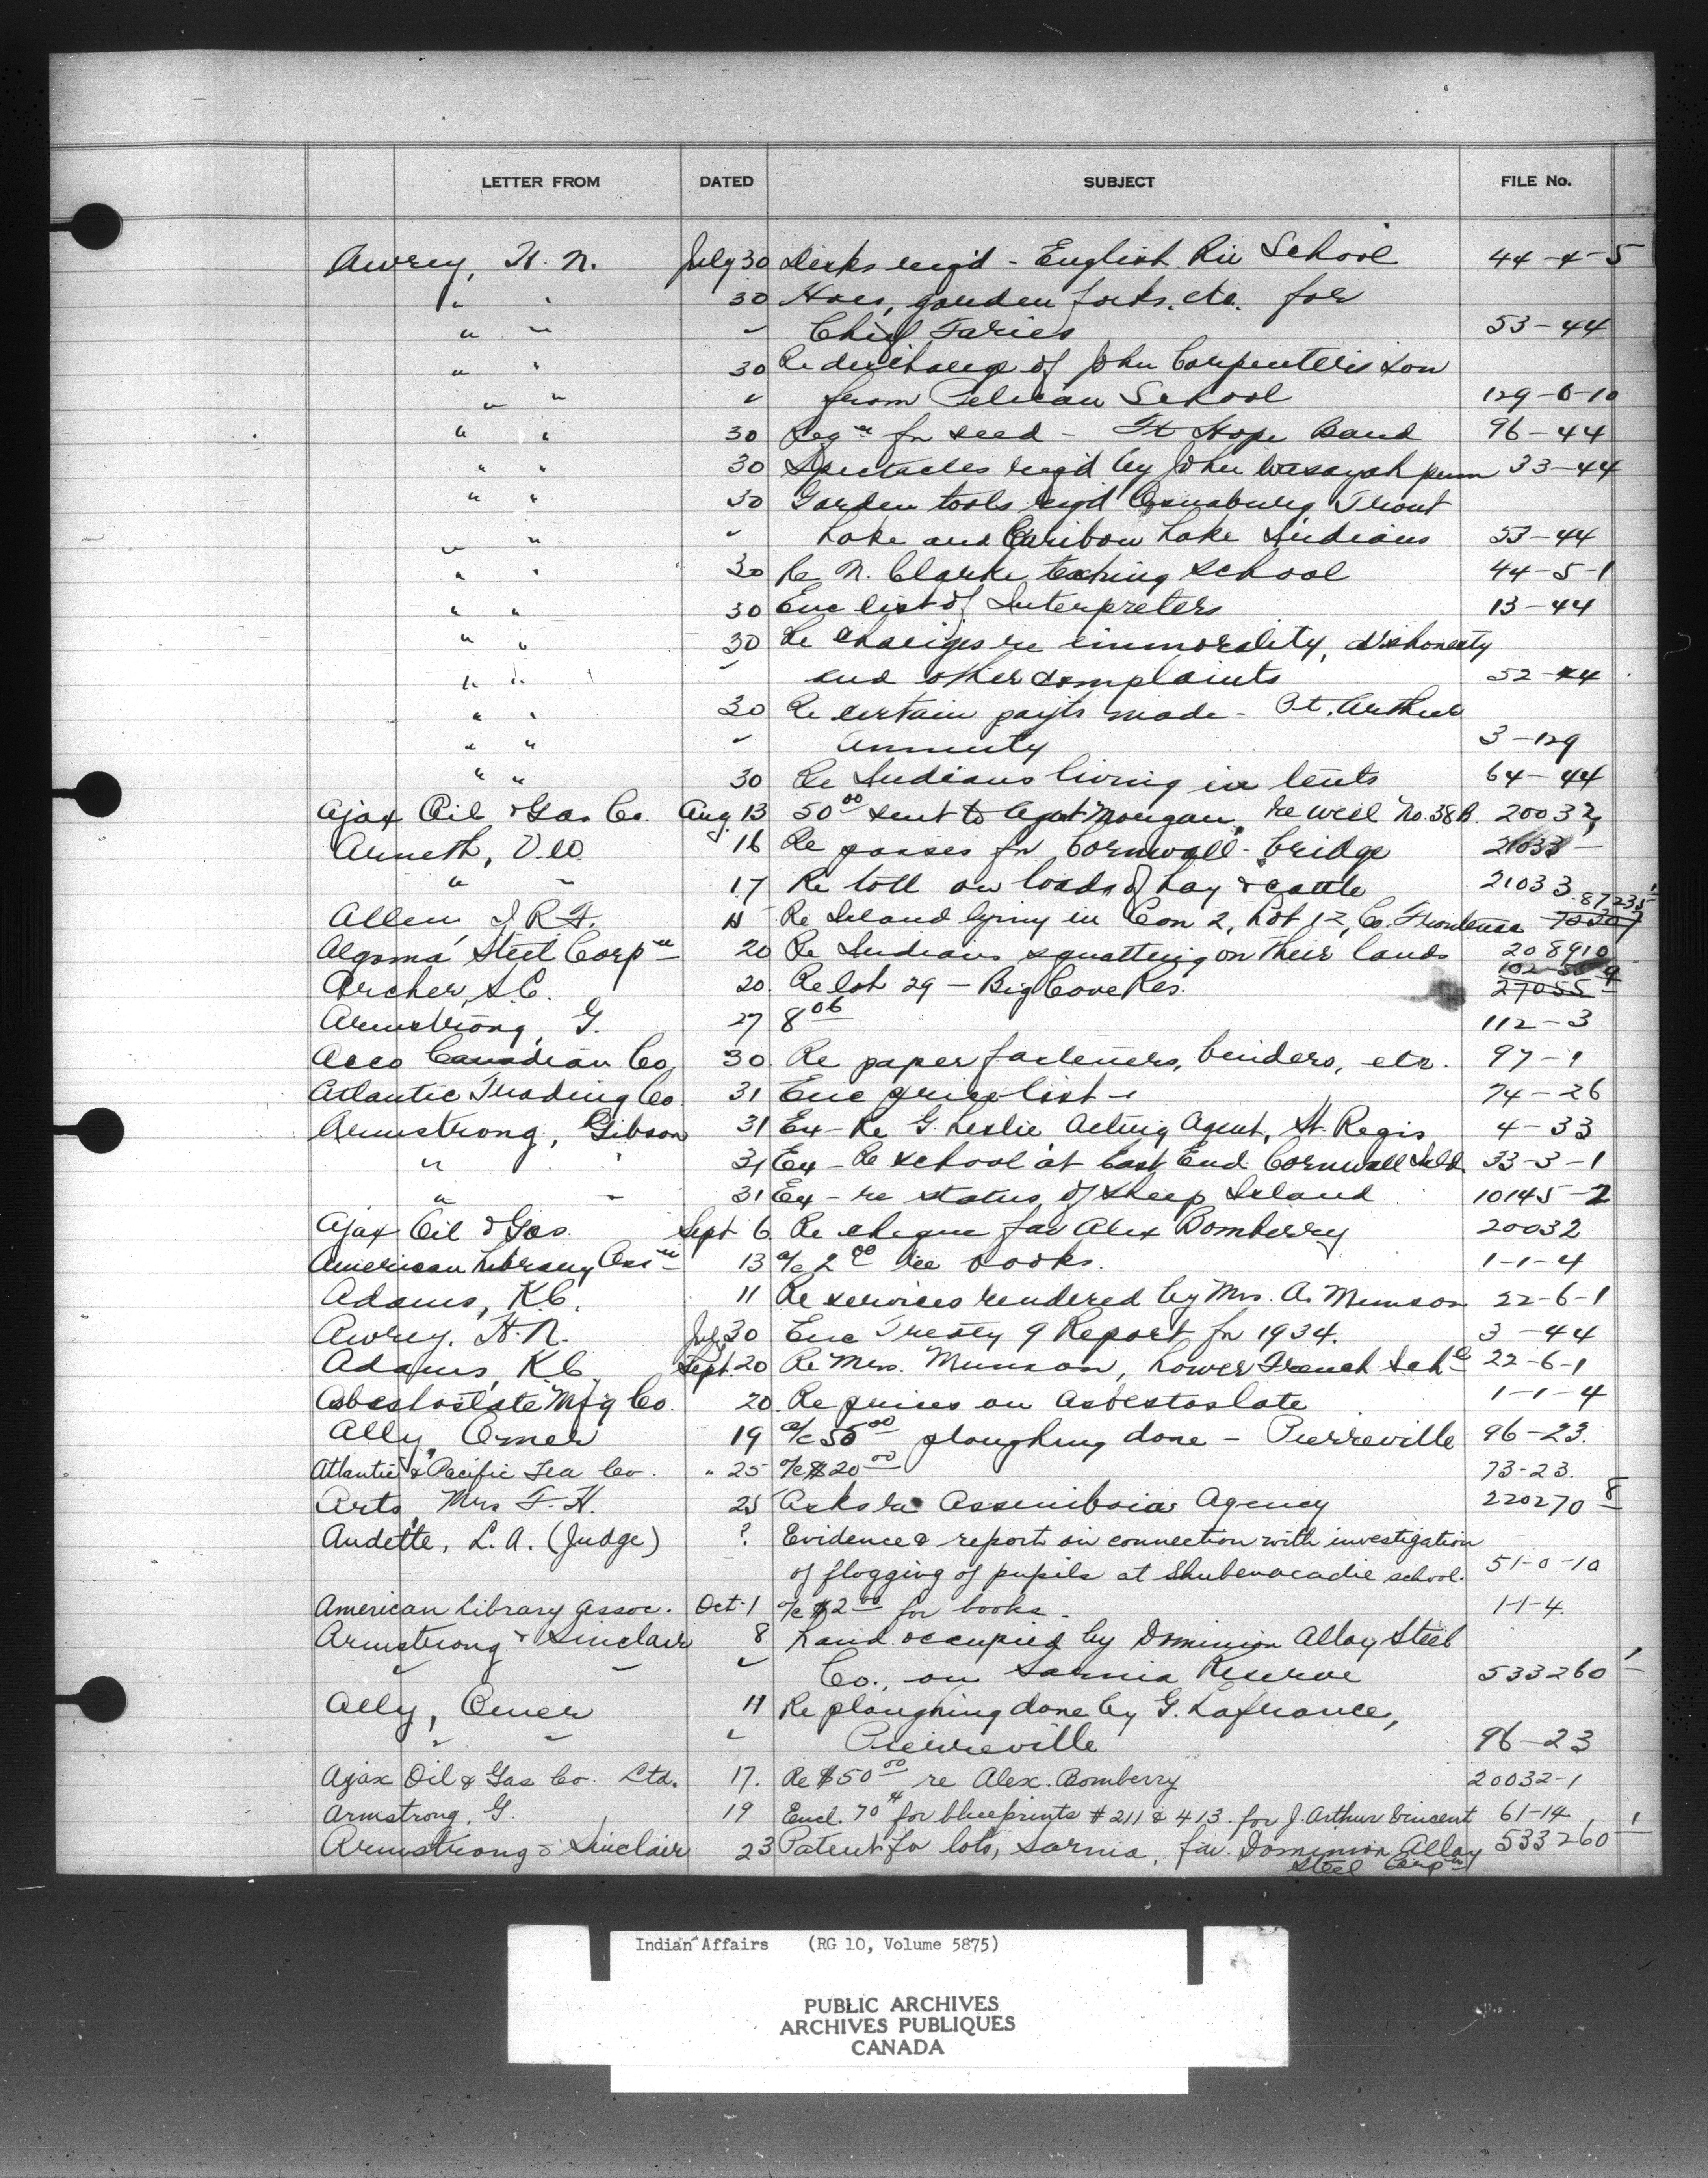 LETTER FROM DATED SUBJECT FILE No.
Awrey, H. N. July 30 Desks reqd - English Riv School 44-4-5
" " 30 Hoes, garden forks, etc. for
" " " Chief Faries 53-44
" " 30 Re discharge of John Carpenter's son
" " " from Pelican School 129-0-10
" " 30 Reqn for seed - Ft Hope Band 96-44
" " 30 Spectacles reqd by John 33-44
" " 30 Garden tools reqd Osnaburg Trout
" " " Lake and Caribou Lake Indians 53-44
" " 30 Re N. Clarke teaching school 44-5-1
" " 30 Enc list of Interpreters 13-44
" " 30 Re charges re immorality, dishonesty
" " " and other complaints 52-44
" " 30 Re certain payts made - Pt. Arthur
" " " Annuity 3-129
" " 30 Re Indians living in tents 64-44
Ajax Oil & Gas Co. Aug 13 50.00 sent to Agent Morgan, re well No. 38A. 20032
Arneth, 16 Re passes for Cornwall bridge 21033-
" " 17 Re toll on loads of hay & cattle 21033
Allen, J. R. F. Re Island lying in Con 2, Lot 12, Co. Frontenac 87235-1
Algoma Steel Corpn 20 Re Indians squatting on their lands 208910
Archer, S.C. 20. Re lot 29 - Big Cove Res. 27055-
Armstrong, G. 27 8.06 112-3
Acco Canadian Co. 30. Re paper fasteners, binders, etc. 97-1
Atlantic Trading Co. 31 Enc price list - 74-26
Armstrong, Gibson 31 Ex - Re G. Leslie Acting Agent, St. Regis 4-33
" " 31 Ex - Re school at East End Cornwall Isld 33-3-1
" " 31 Ex - re status of Sheep Island 10145-2
Ajax Oil & Gas. Sept 6 Re cheque fav Alex Bomberry 20032
American Library Assn 13 a/c 2.00 re books. 1-1-4
Adams, K.C. 11 Re services rendered by Mrs. A. Munson 22-6-1
Awrey. H. N. July 30 Enc Treaty 9 Report for 1934. 3-44
Adams, K.C. Sept. 20 Re Mrs. Munson, Lower French Schl 22-6-1
Asbestoslate Mfg Co. 20. Re prices on Asbestoslate 1-1-4
Ally, Omer 19 a/c 50.00 ploughing done - Pierreville 96-23.
Atlantic & Pacific Tea Co. " 25 a/c $20.00 73-23.
Arts, Mrs F. H. 25 Asks re Assiniboia Agency 220270-8
Audette, L. A. (Judge) ? Evidence & report in connection with investigation
of flogging of pupils at Shubenacadie school. 51-0-10
American Library Assoc. Oct. 1 a/c $2.00 for books - 1-1-4.
Armstrong & Sinclair 8 Land occupied by Dominion Alloy Steel
" " " Co., on Sarnia Reserve 533260-1
Ally, Omer 11 Re ploughing done by G. Lafrance,
" " " Pierreville 96-23
Ajax Oil & Gas Co. Ltd. 17. Re $50.00 re Alex. Bomberry 20032-1
Armstrong, G. 19 Encl. 70¢ for blueprints #211 & 413. for J. Arthur Vincent 61-14
Armstrong & Sinclair 23 Patent for lots, Sarnia, fav. Dominion Alloy 533260-1
Steel Corpn
Indian Affairs (RG 10, Volume 5875)
PUBLIC ARCHIVES
ARCHIVES PUBLIQUES
CANADA